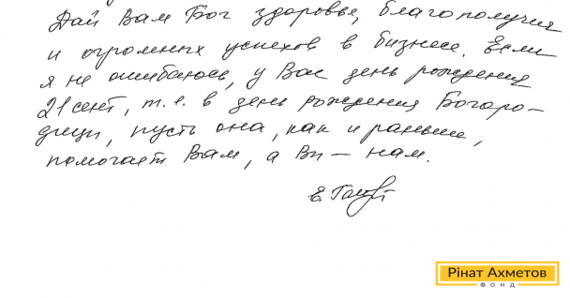 Дай Вам Бог здоровья, благополучия
и огромных успехов в бизнесе. Если
я не ошибаюсь, у Вас день рождения
21 сент, т.е. в день рождения Богоро-
дицы, пусть она, как и раньше,
помогает Вам, а Вы — нам.
Рінат Ахметов
ФОНД